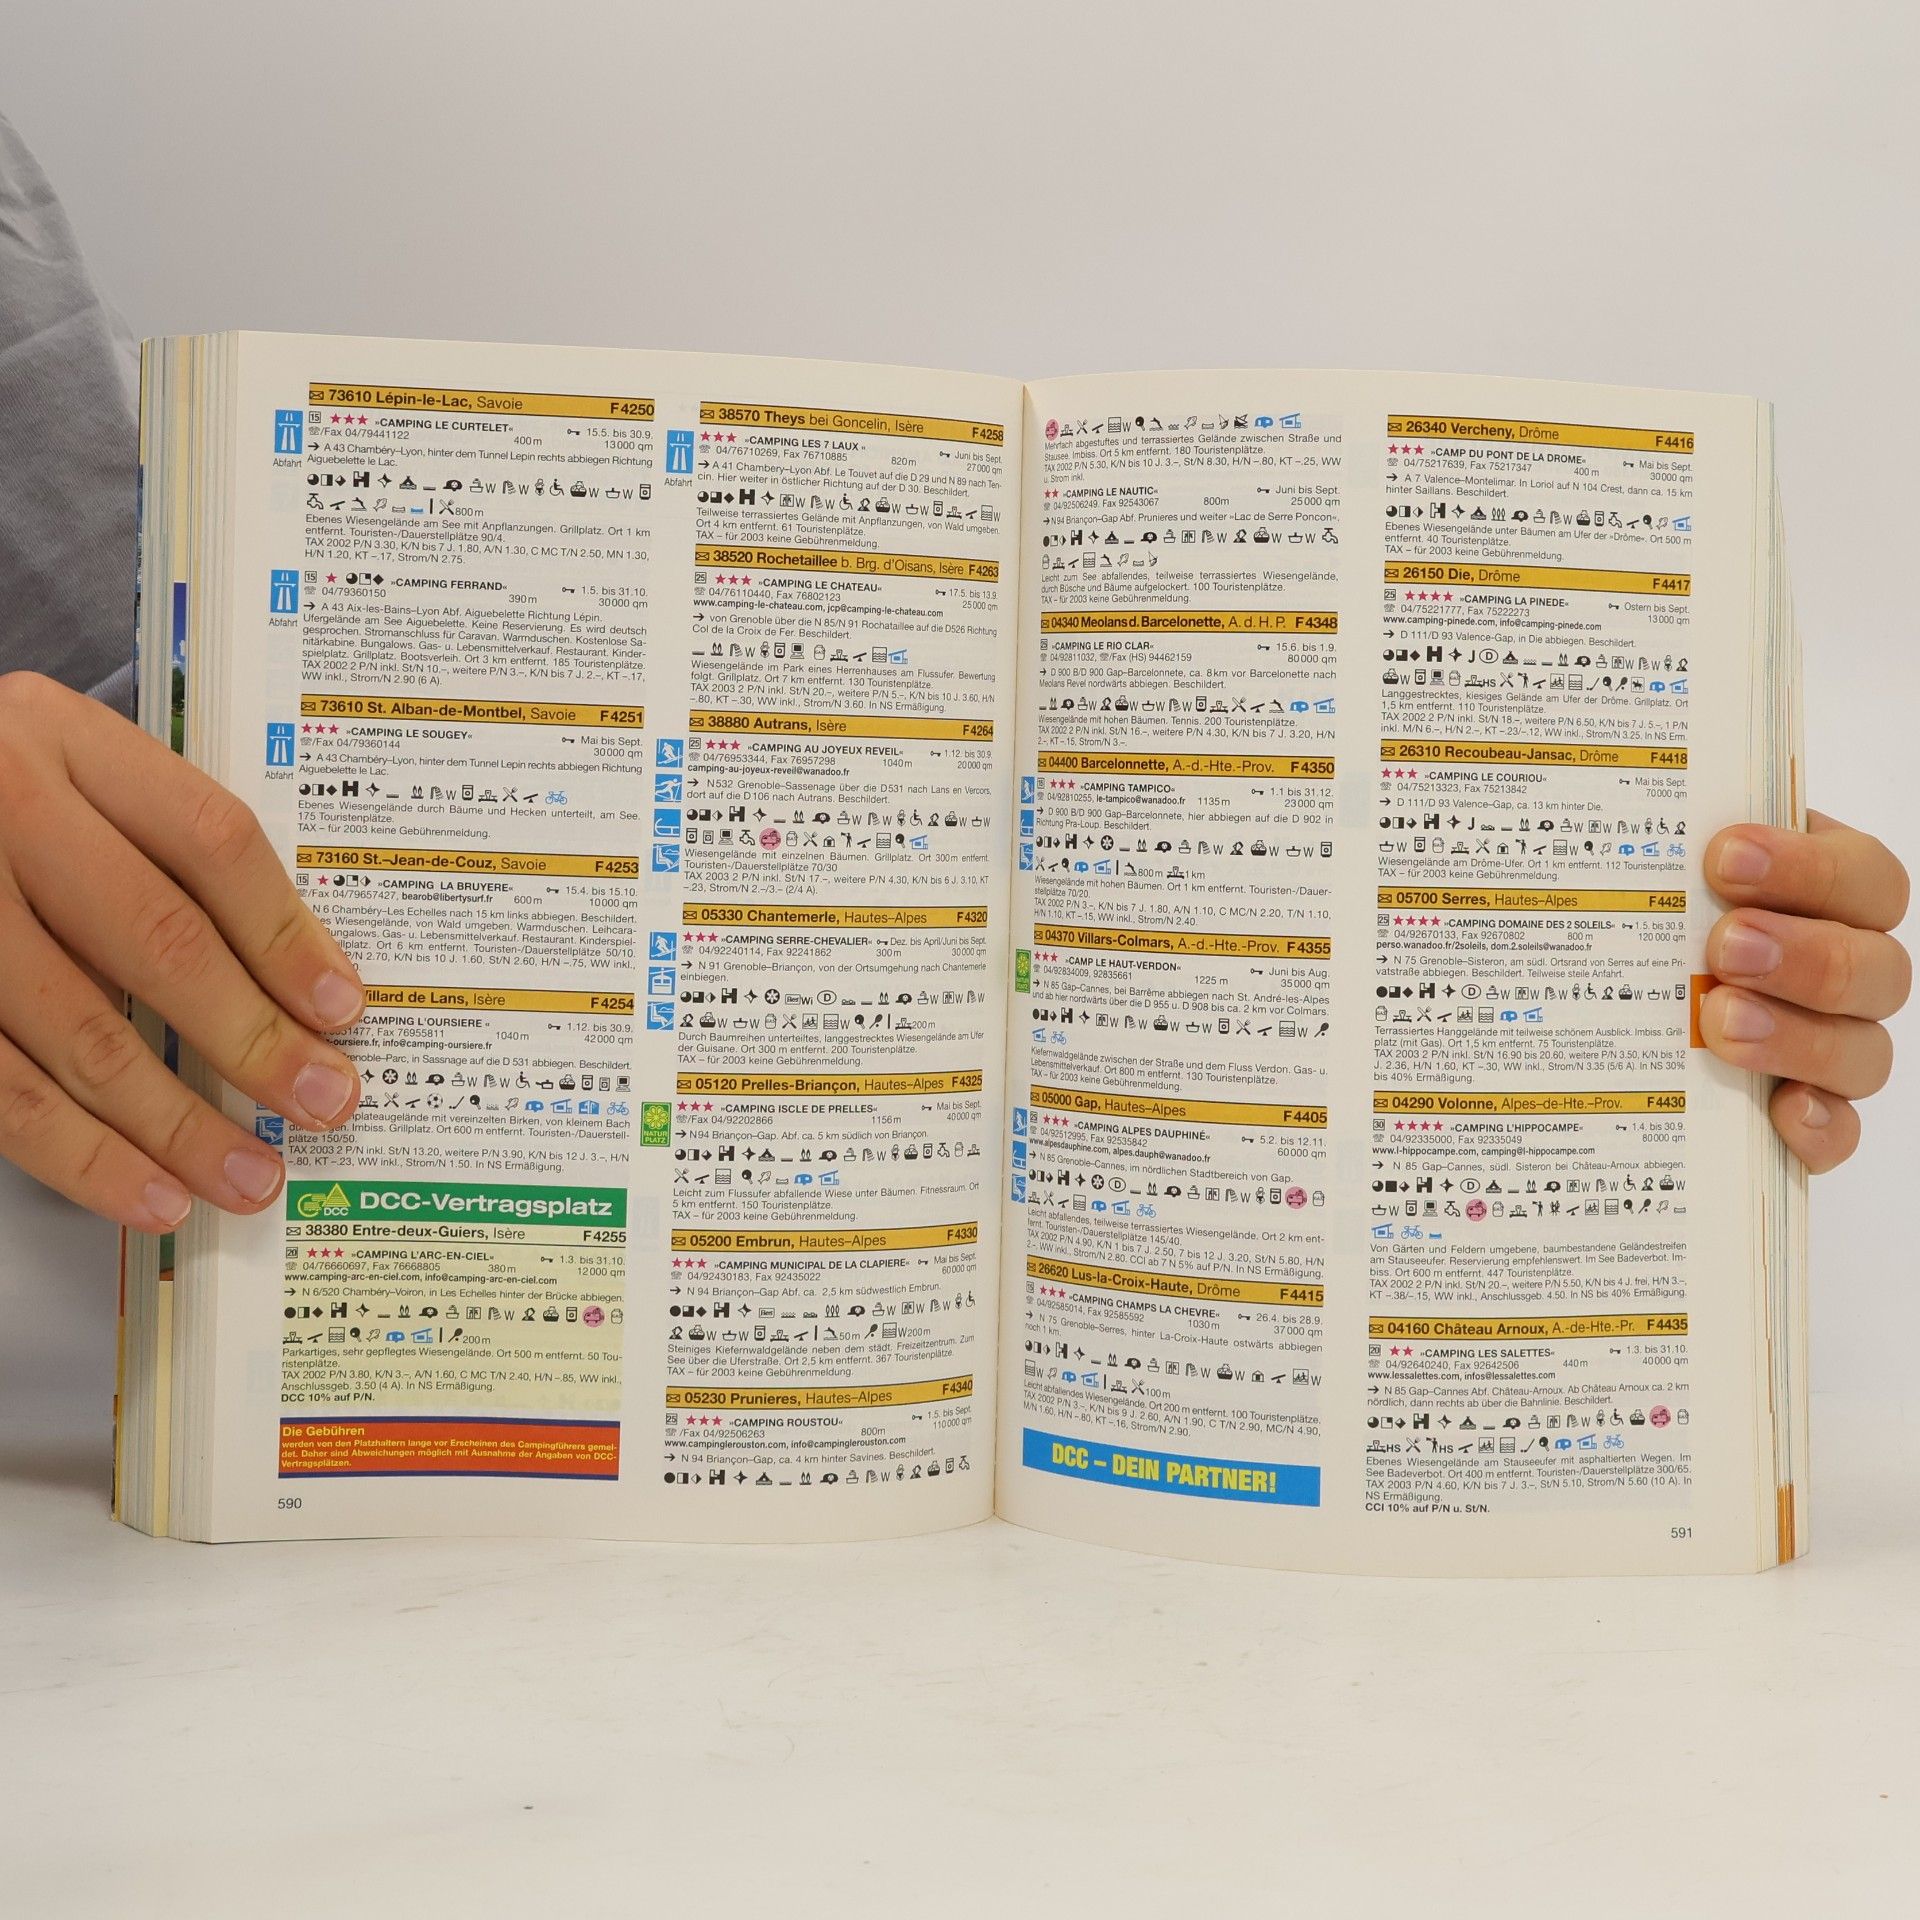 73610 Lépin-le-Lac, Savoie F4250
15 ★★★ »CAMPING LE CURTELET«
/Fax 04/79441122 400m 15.5. bis 30.9.
13000 qm
→ A 43 Chambéry–Lyon, hinter dem Tunnel Lepin rechts abbiegen Richtung
Aiguebelette le Lac.
Abfahrt
800m
Ebenes Wiesengelände am See mit Anpflanzungen. Grillplatz. Ort 1 km
entfernt. Touristen-/Dauerstellplätze 90/4.
TAX 2002 P/N 3.30, K/N bis 7 J. 1.80, A/N 1.30, C MC T/N 2.50, MN 1.30,
H/N 1.20, KT –.17, Strom/N 2.75.
15 ★ »CAMPING FERRAND«
04/79360150 390m 1.5. bis 31.10.
30000 qm
→ A 43 Aix-les-Bains–Lyon Abf. Aiguebelette Richtung Lépin.
Abfahrt
Ufergelände am See Aiguebelette. Keine Reservierung. Es wird deutsch
gesprochen. Stromanschluss für Caravan. Warmduschen. Kostenlose Sa-
nitärkabine. Bungalows. Gas- u. Lebensmittelverkauf. Restaurant. Kinder-
spielplatz. Grillplatz. Bootsverleih. Ort 3 km entfernt. 185 Touristenplätze.
TAX 2002 2 P/N inkl. St/N 10.–, weitere P/N 3.–, K/N bis 7 J. 2.–, KT –.17,
WW inkl., Strom/N 2.90 (6 A).
73610 St. Alban-de-Montbel, Savoie F4251
★★★ »CAMPING LE SOUGEY«
/Fax 04/79360144 Mai bis Sept.
30000 qm
→ A 43 Chambéry–Lyon, hinter dem Tunnel Lepin rechts abbiegen Richtung
Aiguebelette le Lac.
Abfahrt
Ebenes Wiesengelände durch Bäume und Hecken unterteilt, am See.
175 Touristenplätze.
TAX – für 2003 keine Gebührenmeldung.
73160 St.–Jean-de-Couz, Savoie F4253
15 ★ »CAMPING LA BRUYERE«
/Fax 04/79657427, bearob@libertysurf.fr 600m 15.4. bis 15.10.
10000 qm
N 6 Chambéry–Les Echelles nach 15 km links abbiegen. Beschildert.
es Wiesengelände, von Wald umgeben. Warmduschen. Leihcara-
Bungalows. Gas- u. Lebensmittelverkauf. Restaurant. Kinderspiel-
platz. Ort 6 km entfernt. Touristen-/Dauerstellplätze 50/10.
P/N 2.70, K/N bis 10 J. 1.60, St/N 2.60, H/N –.75, WW inkl.,
Villard de Lans, Isère F4254
CAMPING L'OURSIERE«
Fax 76955811 1040m 1.12. bis 30.9.
oursiere.fr, info@camping-oursiere.fr 42000 qm
Grenoble–Parc, in Sassnage auf die D 531 abbiegen. Beschildert.
plateaugelände mit vereinzelten Birken, von kleinem Bach
Imbiss. Grillplatz. Ort 600 m entfernt. Touristen-/Dauerstell-
plätze 150/50.
TAX 2003 2 P/N inkl. St/N 13.20, weitere P/N 3.90, K/N bis 12 J. 3.–, H/N
–.80, KT –.23, WW inkl., Strom/N 1.50. In NS Ermäßigung.
DCC DCC-Vertragsplatz
38380 Entre-deux-Guiers, Isère F4255
20 ★★★ »CAMPING L'ARC-EN-CIEL«
04/76660697, Fax 76668805 380m 1.3. bis 31.10.
www.camping-arc-en-ciel.com, info@camping-arc-en-ciel.com 12000 qm
→ N 6/520 Chambéry–Voiron, in Les Echelles hinter der Brücke abbiegen.
200m
Parkartiges, sehr gepflegtes Wiesengelände. Ort 500 m entfernt. 50 Tou-
ristenplätze.
TAX 2002 P/N 3.80, K/N 3.–, A/N 1.60, C MC T/N 2.40, H/N –.85, WW inkl.,
Anschlussgeb. 3.50 (4 A). In NS Ermäßigung.
DCC 10% auf P/N.
Die Gebühren
werden von den Platzhaltern lange vor Erscheinen des Campingführers gemel-
det. Daher sind Abweichungen möglich mit Ausnahme der Angaben von DCC-
Vertragsplätzen.
590
38570 Theys bei Goncelin, Isère F4258
★★★ »CAMPING LES 7 LAUX«
04/76710269, Fax 76710885 820m Juni bis Sept.
27000 qm
→ A 41 Chambéry–Lyon Abf. Le Touvet auf die D 29 und N 89 nach Ten-
cin. Hier weiter in östlicher Richtung auf der D 30. Beschildert.
Abfahrt
Teilweise terrassiertes Gelände mit Anpflanzungen, von Wald umgeben.
Ort 4 km entfernt. 61 Touristenplätze.
TAX – für 2003 keine Gebührenmeldung.
38520 Rochetaillee b. Brg. d'Oisans, Isère F4263
25 ★★★ »CAMPING LE CHATEAU«
04/76110440, Fax 76802123 17.5. bis 13.9.
www.camping-le-chateau.com, jcp@camping-le-chateau.com 25000 qm
→ von Grenoble über die N 85/N 91 Rochataillee auf die D526 Richtung
Col de la Croix de Fer. Beschildert.
Wiesengelände im Park eines Herrenhauses am Flussufer. Bewertung
folgt. Grillplatz. Ort 7 km entfernt. 130 Touristenplätze.
TAX 2003 2 P/N inkl. St/N 20.–, weitere P/N 5.–, K/N bis 10 J. 3.60, H/N
–.80, KT –.30, WW inkl., Strom/N 3.60. In NS Ermäßigung.
38880 Autrans, Isère F4264
25 ★★★ »CAMPING AU JOYEUX REVEIL«
04/76953344, Fax 76957298 1040m 1.12. bis 30.9.
camping-au-joyeux-reveil@wanadoo.fr 20000 qm
→ N532 Grenoble–Sassenage über die D531 nach Lans en Vercors,
dort auf die D106 nach Autrans. Beschildert.
Wiesengelände mit einzelnen Bäumen. Grillplatz. Ort 300m entfernt.
Touristen-/Dauerstellplätze 70/30
TAX 2003 2 P/N inkl. St/N 17.–, weitere P/N 4.30, K/N bis 6 J. 3.10, KT
–.23, Strom/N 2.–/3.– (2/4 A).
05330 Chantemerle, Hautes–Alpes F4320
★★★ »CAMPING SERRE-CHEVALIER« Dez. bis April/Juni bis Sept.
04/92240114, Fax 92241862 300m 30000 qm
→ N 91 Grenoble–Briançon, von der Ortsumgehung nach Chantemerle
einbiegen.
200m
Durch Baumreihen unterteiltes, langgestrecktes Wiesengelände am Ufer
der Guisane. Ort 300 m entfernt. 200 Touristenplätze.
TAX – für 2003 keine Gebührenmeldung.
05120 Prelles-Briançon, Hautes–Alpes F4325
★★★ »CAMPING ISCLE DE PRELLES«
/Fax 04/92202866 1156m Mai bis Sept.
40000 qm
NATUR PLATZ
→ N94 Briançon–Gap. Abf. ca. 5 km südlich von Briançon.
Leicht zum Flussufer abfallende Wiese unter Bäumen. Fitnessraum. Ort
5 km entfernt. 150 Touristenplätze.
TAX – für 2003 keine Gebührenmeldung.
05200 Embrun, Hautes–Alpes F4330
★★★ »CAMPING MUNICIPAL DE LA CLAPIERE« Mai bis Sept.
04/92430183, Fax 92435022 60000 qm
→ N 94 Briançon–Gap Abf. ca. 2,5 km südwestlich Embrun.
50m W200m
Steiniges Kiefernwaldgelände neben dem städt. Freizeitzentrum. Zum
See über die Uferstraße. Ort 2,5 km entfernt. 367 Touristenplätze.
TAX – für 2003 keine Gebührenmeldung.
05230 Prunieres, Hautes–Alpes F4340
25 ★★★ »CAMPING ROUSTOU«
/Fax 04/92506263 800m 1.5. bis Sept.
www.campinglerouston.com, info@campinglerouston.com 110000 qm
→ N 94 Briançon–Gap, ca. 4 km hinter Savines. Beschildert.
Mehrfach abgestuftes und terrassiertes Gelände zwischen Straße und
Stausee. Imbiss. Ort 5 km entfernt. 180 Touristenplätze.
TAX 2002 P/N 5.30, K/N bis 10 J. 3.–, St/N 8.30, H/N –.80, KT –.25, WW
u. Strom inkl.
★★ »CAMPING LE NAUTIC«
04/92506249, Fax 92543067 800m Juni bis Sept.
25000 qm
→ N94 Briançon–Gap Abf. Prunieres und weiter »Lac de Serre Poncon«.
Leicht zum See abfallendes, teilweise terrassiertes Wiesengelände,
durch Büsche und Bäume aufgelockert. 100 Touristenplätze.
TAX – für 2003 keine Gebührenmeldung.
04340 Meolans d. Barcelonette, A. d. H. P. F4348
»CAMPING LE RIO CLAR«
04/92811032, /Fax (HS) 94462159 15.6. bis 1.9.
80000 qm
→ D 900 B/D 900 Gap–Barcelonnete, ca. 8km vor Barcelonete nach
Meolans Revel nordwärts abbiegen. Beschildert.
Wiesengelände mit hohen Bäumen. Tennis. 200 Touristenplätze.
TAX 2002 2 P/N inkl. St/N 16.–, weitere P/N 4.30, K/N bis 7 J. 3.20, H/N
2.–, KT –.15, Strom/N 3.–.
04400 Barcelonnette, A.-d.-Hte.-Prov. F4350
15 ★★★ »CAMPING TAMPICO«
04/92810255, le-tampico@wanadoo.fr 1135m 1.1 bis 31.12.
23000 qm
→ D 900 B/D 900 Gap–Barcelonnete, hier abbiegen auf die D 902 in
Richtung Pra-Loup. Beschildert.
800m 1km
Wiesengelände mit hohen Bäumen. Ort 1 km entfernt. Touristen-/Dauer-
stellplätze 70/20.
TAX 2002 P/N 3.–, K/N bis 7 J. 1.80, A/N 1.10, C MC/N 2.20, T/N 1.10,
H/N 1.10, KT –.15, WW inkl., Strom/N 2.40.
04370 Villars-Colmars, A.-d.-Hte.-Prov. F4355
★★★ »CAMP LE HAUT-VERDON«
04/92834009, 92835661 1225 m Juni bis Aug.
35000 qm
→ N 85 Gap–Cannes, bei Barrême abbiegen nach St. André-les-Alpes
und ab hier nordwärts über die D 955 u. D 908 bis ca. 2 km vor Colmars.
Kiefernwaldgelände zwischen der Straße und dem Fluss Verdon. Gas- u.
Lebensmittelverkauf. Ort 800 m entfernt. 130 Touristenplätze.
TAX – für 2003 keine Gebührenmeldung.
05000 Gap, Hautes–Alpes F4405
25 ★★★ »CAMPING ALPES DAUPHINÉ«
04/92512995, Fax 92535842 5.2. bis 12.11.
www.alpesdauphine.com, alpes.dauph@wanadoo.fr 60000 qm
→ N 85 Grenoble–Cannes, im nördlichen Stadtbereich von Gap.
Leicht abfallendes, teilweise terrassiertes Wiesengelände. Ort 2 km ent-
fernt. Touristen-/Dauerstellplätze 145/40.
TAX 2002 P/N 4.90, K/N 1 bis 7 J. 2.50, 7 bis 12 J. 3.20, St/N 5.80, H/N
2.–, WW inkl., Strom/N 2.80. CCI ab 7 N 5% auf P/N. In NS Ermäßigung.
26620 Lus-la-Croix-Haute, Drôme F4415
★★★ »CAMPING CHAMPS LA CHEVRE«
04/92585014, Fax 92585592 1030m 26.4. bis 28.9.
37000 qm
→ N 75 Grenoble–Serres, hinter La-Croix-Haute ostwärts abbiegen
noch 1 km.
100m
Leicht abfallendes Wiesengelände. Ort 200 m entfernt. 100 Touristenplätze.
TAX 2002 P/N 3.–, K/N bis 9 J. 2.60, A/N 1.90, C T/N 2.90, MC/N 4.90,
M/N 1.60, H/N –.80, KT –.16, Strom/N 2.90.
DCC – DEIN PARTNER!
26340 Vercheny, Drôme F4416
★★★ »CAMP DU PONT DE LA DROME«
04/75217639, Fax 75217347 400 m Mai bis Sept.
30000 qm
→ A 7 Valence–Montelimar. In Loriol auf N 104 Crest, dann ca. 15 km
hinter Saillans. Beschildert.
Ebenes Wiesengelände unter Bäumen am Ufer der »Drôme«. Ort 500 m
entfernt. 40 Touristenplätze.
TAX – für 2003 keine Gebührenmeldung.
26150 Die, Drôme F4417
25 ★★★★ »CAMPING LA PINEDE«
04/75221777, Fax 75222273 Ostern bis Sept.
www.camping-pinede.com, info@camping-pinede.com 13000 qm
→ D 111/D 93 Valence-Gap, in Die abbiegen. Beschildert.
Langgestrecktes, kiesiges Gelände am Ufer der Drôme. Grillplatz. Ort
1,5 km entfernt. 110 Touristenplätze.
TAX 2002 2 P/N inkl. St/N 18.–, weitere P/N 6.50, K/N bis 7 J. 5.–, 1 P/N
inkl. M/N 6.–, H/N 2.–, KT –.23/–.12, WW inkl., Strom/N 3.25. In NS Erm.
26310 Recoubeau-Jansac, Drôme F4418
★★★ »CAMPING LE COURIOU«
04/75213323, Fax 75213842 Mai bis Sept.
70000 qm
→ D 111/D 93 Valence–Gap, ca. 13 km hinter Die.
Wiesengelände am Drôme-Ufer. Ort 1 km entfernt. 112 Touristenplätze.
TAX – für 2003 keine Gebührenmeldung.
05700 Serres, Hautes–Alpes F4425
25 ★★★★ »CAMPING DOMAINE DES 2 SOLEILS« 1.5. bis 30.9.
04/92670133, Fax 92670802 800 m 120000 qm
perso.wanadoo.fr/2soleils, dom.2.soleils@wanadoo.fr
→ N 75 Grenoble–Sisteron, am südl. Ortsrand von Serres auf eine Pri-
vatstraße abbiegen. Beschildert. Teilweise steile Anfahrt.
Terrassiertes Hanggelände mit teilweise schönem Ausblick. Imbiss. Grill-
platz (mit Gas). Ort 1,5 km entfernt. 75 Touristenplätze.
TAX 2003 2 P/N inkl. St/N 16.90 bis 20.60, weitere P/N 3.50, K/N bis 12
J. 2.36, H/N 1.60, KT –.30, WW inkl., Strom/N 3.35 (5/6 A). In NS 30%
bis 40% Ermäßigung.
04290 Volonne, Alpes–de-Hte.–Prov. F4430
30 ★★★★ »CAMPING L'HIPPOCAMPE«
04/92335000, Fax 92335049 1.4. bis 30.9.
www.l-hippocampe.com, camping@l-hippocampe.com 80000 qm
→ N 85 Gap–Cannes, südl. Sisteron bei Château-Arnoux abbiegen.
Von Gärten und Feldern umgebene, baumbestandene Geländestreifen
am Stauseeufer. Reservierung empfehlenswert. Im See Badeverbot. Im-
biss. Ort 600 m entfernt. 447 Touristenplätze.
TAX 2002 2 P/N inkl. St/N 20.–, weitere P/N 5.50, K/N bis 4 J. frei, H/N 3.–,
KT –.38/–.15, WW inkl., Anschlussgeb. 4.50. In NS bis 40% Ermäßigung.
04160 Château Arnoux, A.-de-Hte.-Pr. F4435
20 ★★ »CAMPING LES SALETTES«
04/92640240, Fax 92642506 440m 1.3. bis 31.10.
www.lessalettes.com, infos@lessalettes.com 40000 qm
→ N 85 Gap–Cannes Abf. Château-Arnoux. Ab Château Arnoux ca. 2 km
nördlich, dann rechts ab über die Bahnlinie. Beschildert.
Ebenes Wiesengelände am Stauseeufer mit asphaltierten Wegen. Im
See Badeverbot. Ort 400 m entfernt. Touristen-/Dauerstellplätze 300/65.
TAX 2003 P/N 4.60, K/N bis 7 J. 3.–, St/N 5.10, Strom/N 5.60 (10 A). In
NS Ermäßigung.
CCI 10% auf P/N u. St/N.
591